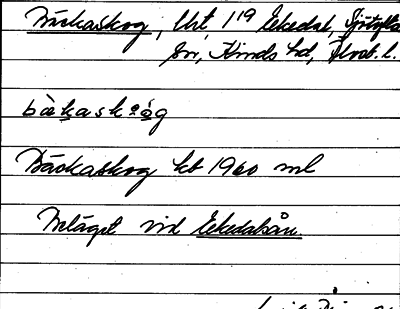 Bäckaskog, lht, 1/19 Ekedal, Sjötofta
sn, Kinds hd, Älvsb. l.
bä̀kaskó̀g
Bäckaskog kb 1960 ml
Beläget vid Ekedalsån.